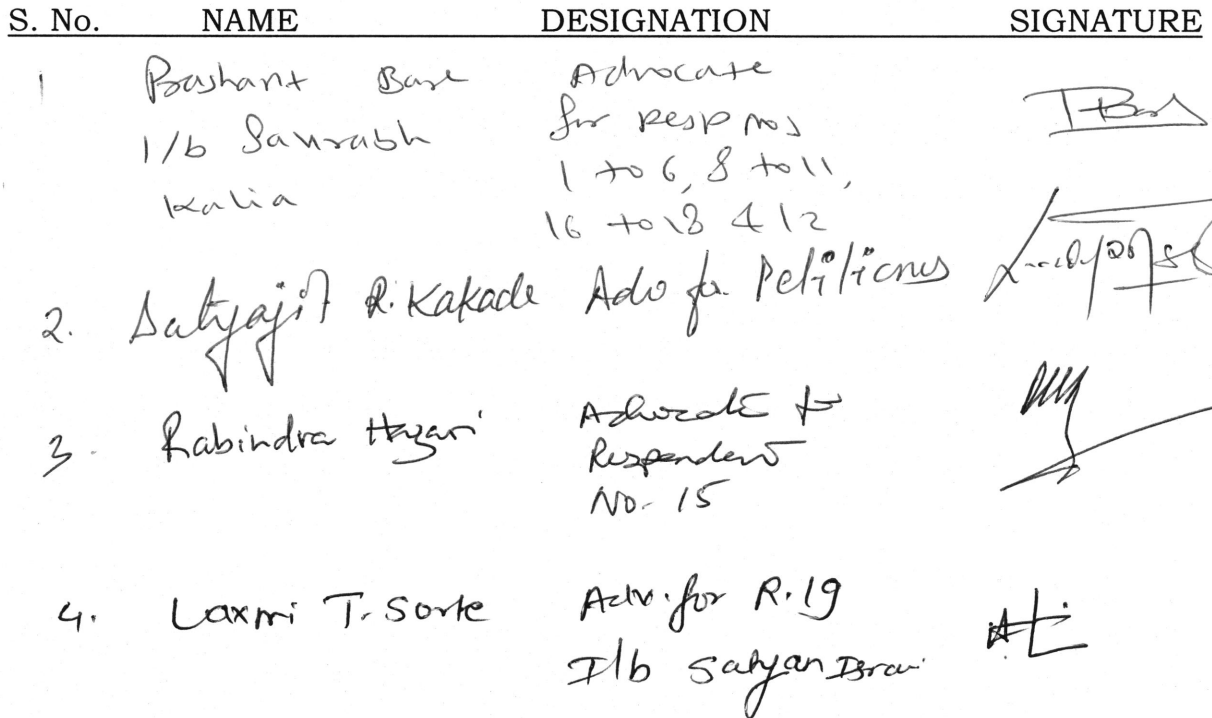 S. No. NAME DESIGNATION SIGNATURE
1 Prashant Advocate
I/b Saurabh for Resp nos
Kalia 1 to 6, 8 to 11,
16 to 18 & 12
2. Satyajit R. Kakade Adv for Petitioners
3. Rabindra Hazari Advocate for
Respondent
No. 15
4. Laxmi T. Sorte Adv. for R. 19
I/b Satyan